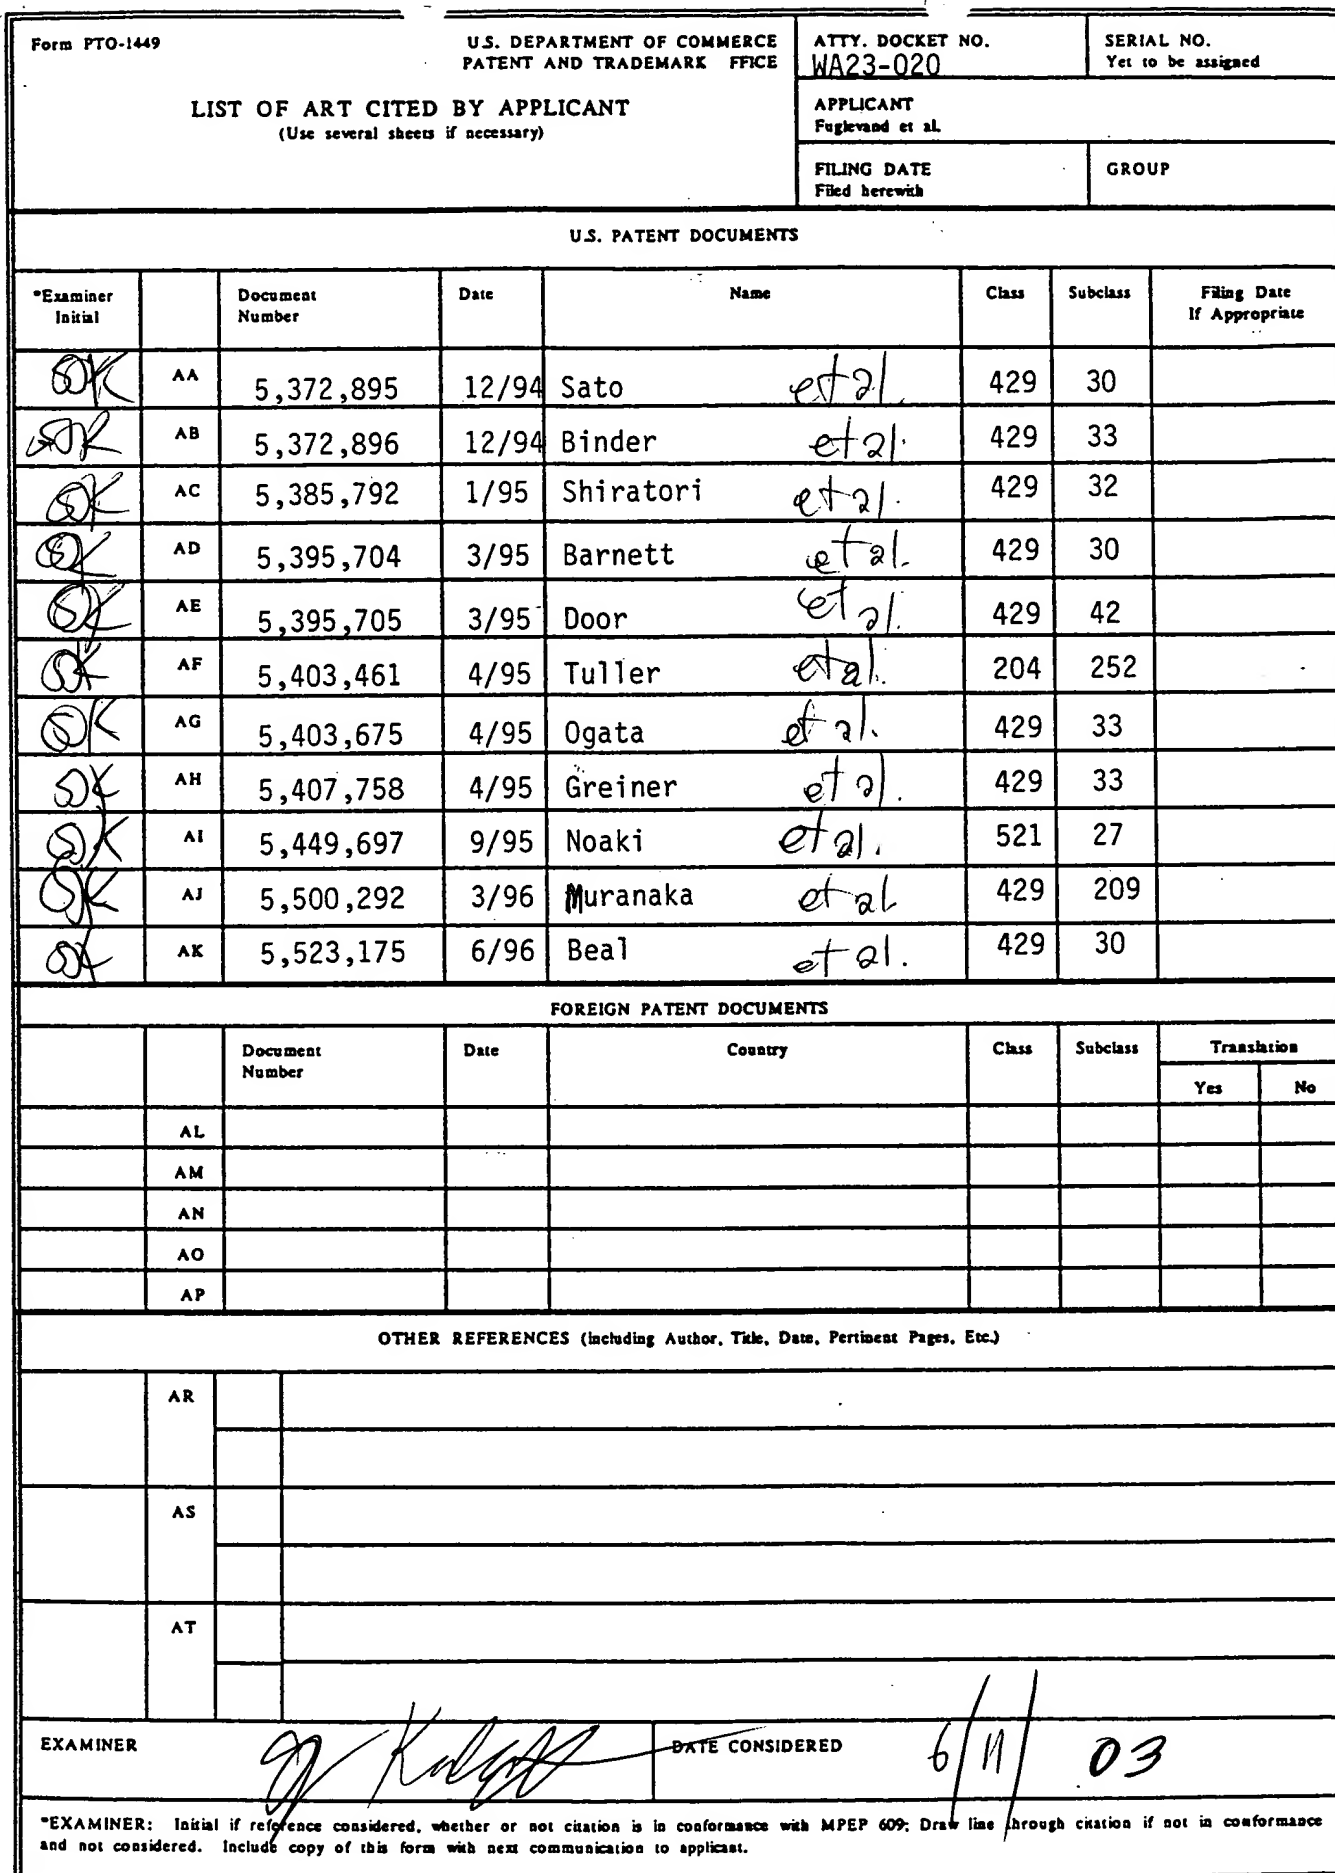 Form PTO-1449
U.S. DEPARTMENT OF COMMERCE
PATENT AND TRADEMARK FFICE
ATTY. DOCKET NO.
WA23-020
SERIAL NO.
Yet to be assigned
LIST OF ART CITED BY APPLICANT
(Use several sheets if necessary)
APPLICANT
Fuglevand et al.
FILING DATE
Filed herewith
GROUP
U.S. PATENT DOCUMENTS
*Examiner Initial Document Number Date Name Class Subclass Filing Date If Appropriate
AA 5,372,895 12/94 Sato et al. 429 30
AB 5,372,896 12/94 Binder et al. 429 33
AC 5,385,792 1/95 Shiratori et al. 429 32
AD 5,395,704 3/95 Barnett et al. 429 30
AE 5,395,705 3/95 Door et al. 429 42
AF 5,403,461 4/95 Tuller et al. 204 252
AG 5,403,675 4/95 Ogata et al. 429 33
AH 5,407,758 4/95 Greiner et al. 429 33
AI 5,449,697 9/95 Noaki et al. 521 27
AJ 5,500,292 3/96 Muranaka et al 429 209
AK 5,523,175 6/96 Beal et al. 429 30
FOREIGN PATENT DOCUMENTS
Document Number Date Country Class Subclass Translation
Yes No
AL
AM
AN
AO
AP
OTHER REFERENCES (Including Author, Title, Date, Pertinent Pages, Etc.)
AR
AS
AT
EXAMINER DATE CONSIDERED 6/11/03
*EXAMINER: Initial if reference considered, whether or not citation is in conformance with MPEP 609; Draw line through citation if not in conformance
and not considered. Include copy of this form with next communication to applicant.